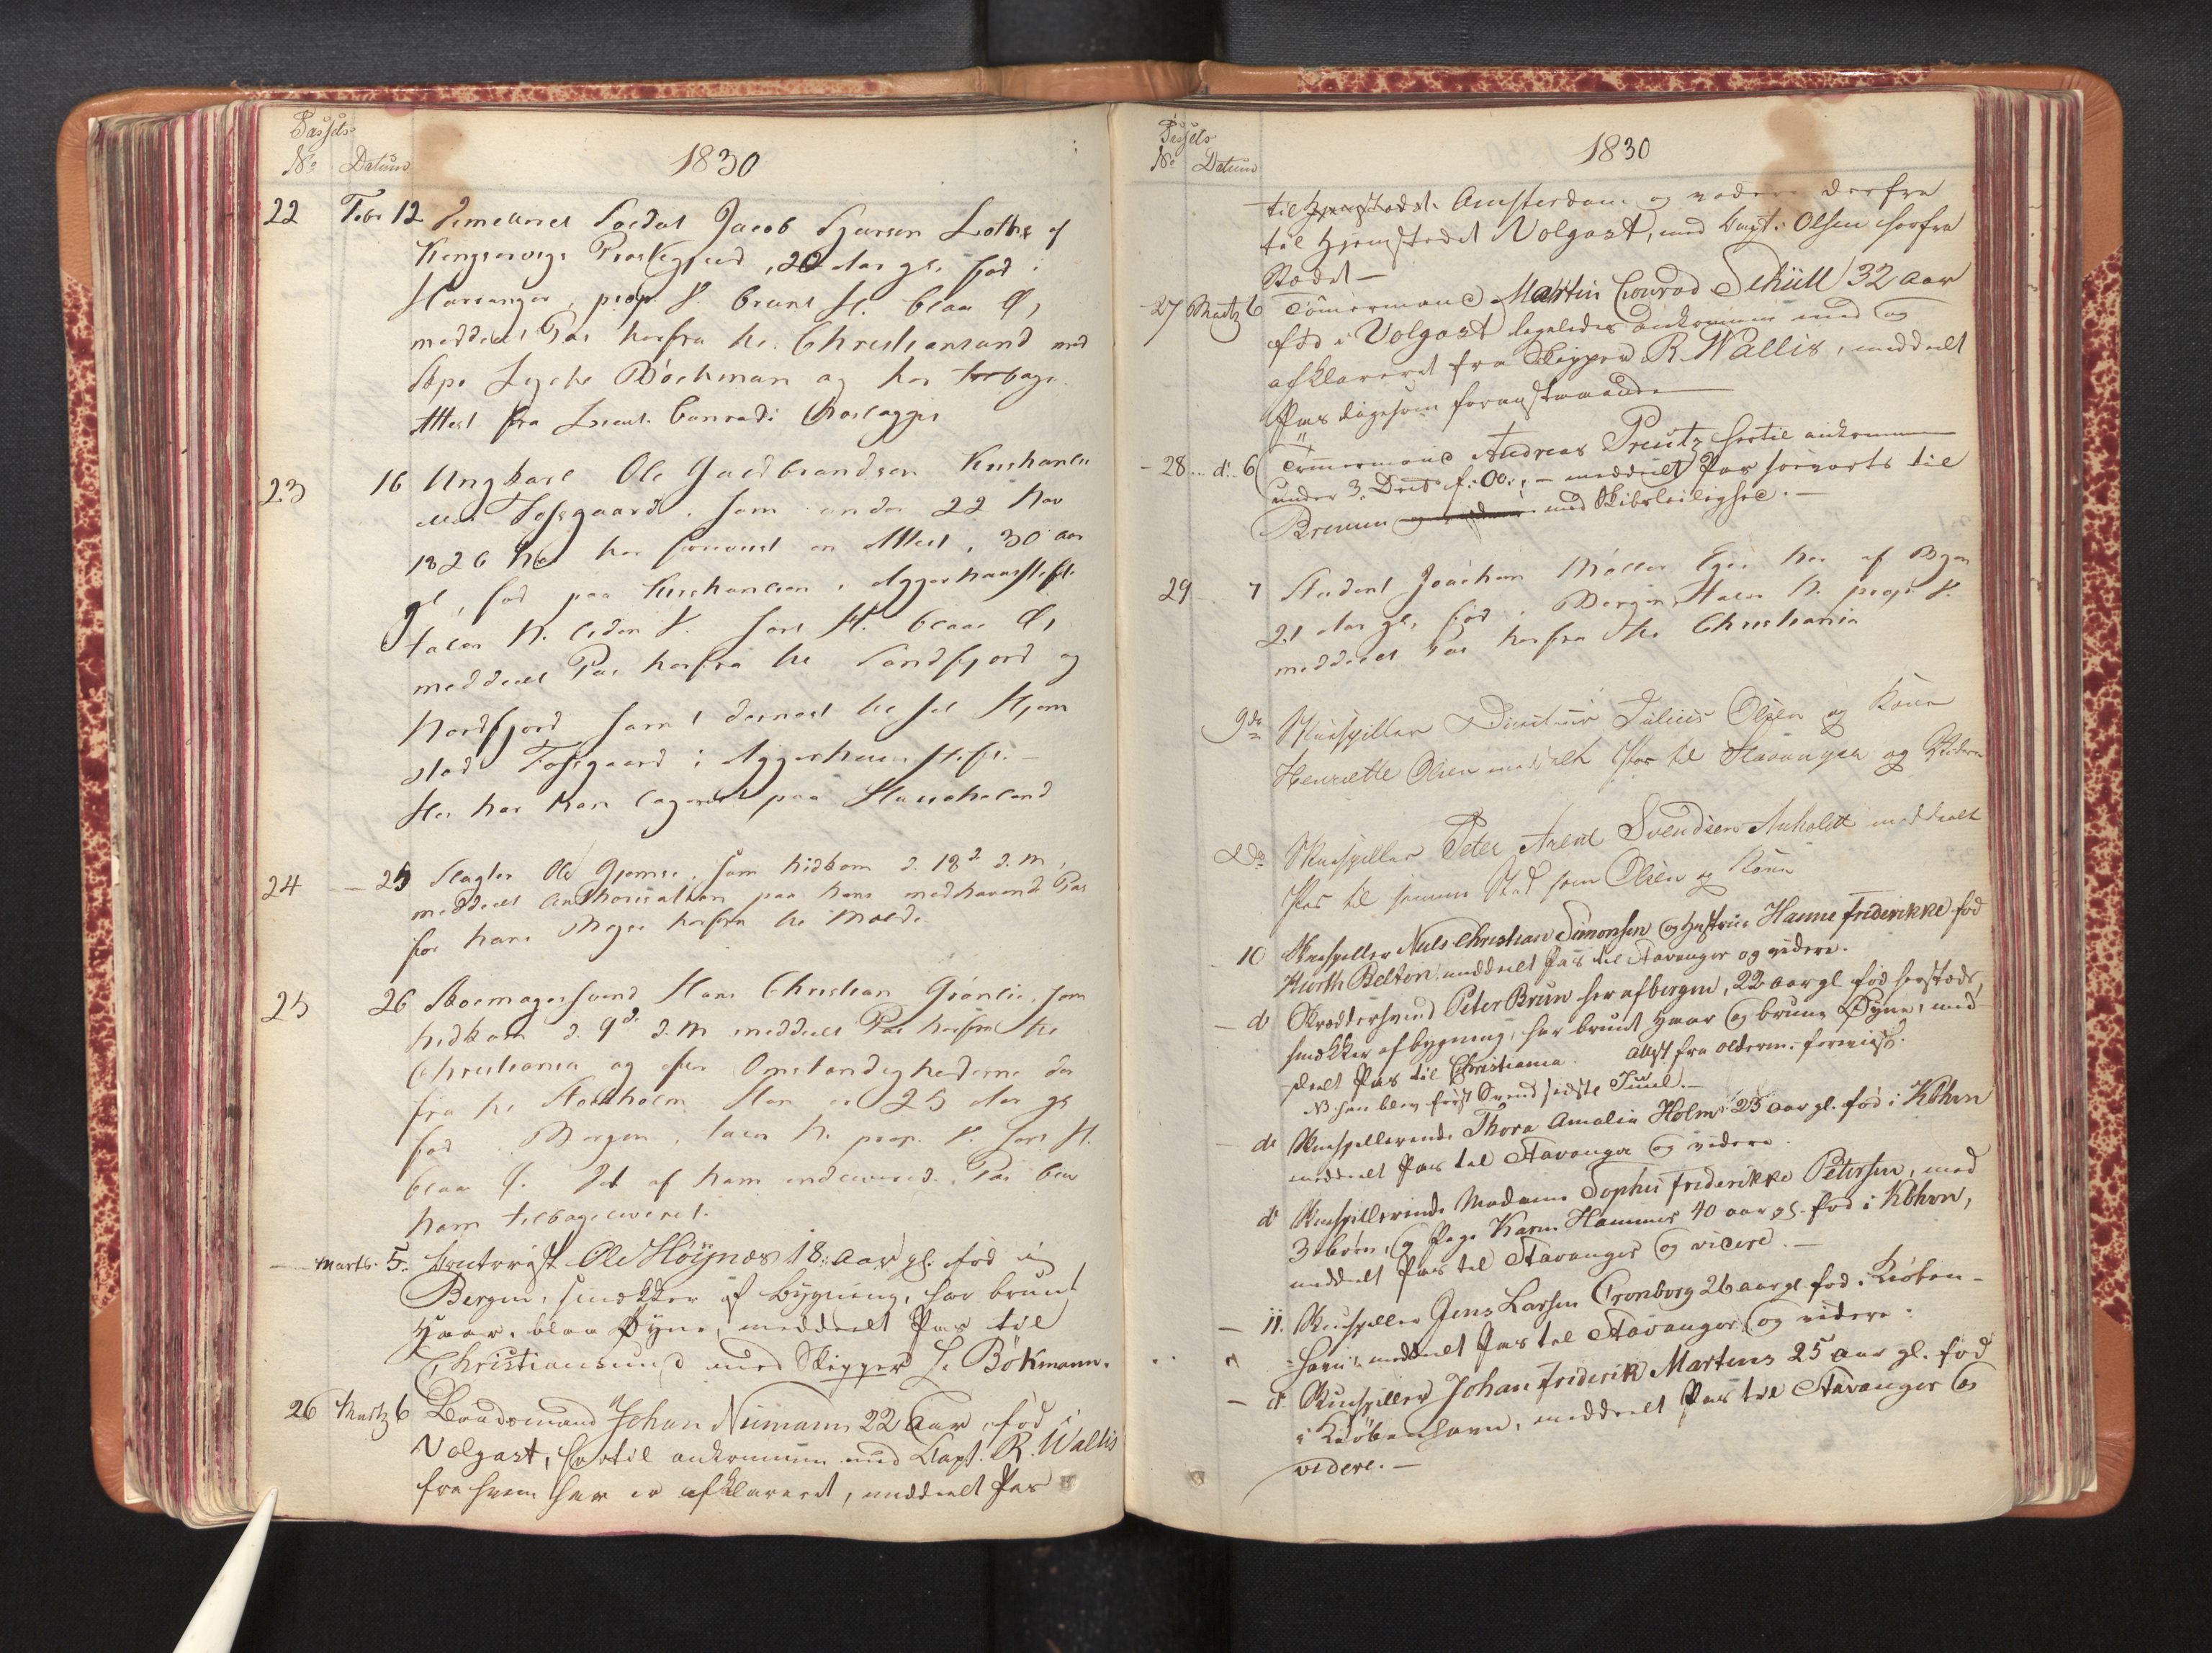 Passets
No Datum
1830
22 Febr 12 Soldat Jacob Sjursen Lothe af
Kingservigs Præstegjeld, 20 Aar gl. fød i
Hardanger, prop. V. brunt H. blaa Ø,
meddeelt Pas herfra til Christiansand med
Skpr Lyche Böckman og har
Attest fra Lieut. Conradi
23 16 Ungkarl Ole Guldbrandsen
Fossgaard, som under 22 Nov
1826 har foreviist en Attest, 30 aar
gl, fød paa i Aggerhuusstift
taler N. liden V. sort H. blaae Ø,
meddeelt Pas herfra til Sandfjord og
Nordfjord samt dernest til sit Hjem
stad Fossgaard i Aggerhuus Stift. —
Her har han logeret paa
24 — 25 Slagter Ole Gjemse, som hidkom d. 18d d. M,
meddeelt paa hans medhavende Pas
for hans Reyse herfra til Molde
25 26 Skomagersvend Hans Christian Grönlie, som
hidkom d. 9d d. M meddeelt Pas herfra til
Christiania og efter Omstændighederne der
fra til Stockholm. Han er 25 Aar gl
fød i Bergen, taler N. prop. V. sort H.
blaa Ø. Det af ham indleverede Pas blev
ham tilbageleveret.
— Marts. 5. Ole Höÿnæs 18: Aar gl. fød i
Bergen, smækker af bÿgning, har brunt
Haar, blaa Øyne, meddeelt Pas til
Christiansund med Skipper L. Bökmann.
26 Martz 6 Baadsmand Johan Niimann 22 Aar, fød i
Volgast, hertil ankommen med Capt. R. Wallis
fra hvem han er afklareret, meddeelt Pas
Passets
No Datum
1830
til Hjemstedet Amsterdam og videre derfra
til Hjemstedet Volgast, med Capt: Olsen herfra
Stædet —
27 Martz 6 Tömermand Martin Conrad Schüll 32 Aar
fød i Volgast ligeledes ankommen med og
afklareret fra Skipper R. Wallis, meddeelt
Pas ligesom foranstaaende
- 28 .. d: 6 Tömmermand Andreas Preutz hertil ankommen
under 3. Decb. f: A: , — meddeelt Pas herværts til
Bremen med Skibsleilighed. —
29 7 Student Joachim Möller her af Byen
21 Aar gl, fød i Bergen, taler N. prop. V.
meddeelt Pas herfra til Christiania
9de Skuespiller Directeur Julius Olsen og Kone
Henriette Olsen meddelt Pas til Stavanger og Videre
do Skuespiller Peter Arent Svendsen Anholdt meddeelt
Pas til samme Sted som Olsen og Kone
- 10 Skuespiller Niels Christian Simonsen og Hustrue Hanne Friderikke fød
Kurth Belton meddeelt Pas til Stavanger og videre.
— do Skræddersvend Peter Brun her af bergen, 22 aar gl. fød herstæds,
smækker af bygning, har brunt Haar og brune Øyne, med-
deelt Pas til Christiania. Attest fra olderm. foreviist.
NB. han blev först Svend sidste Juul. —
— do Skuespillerinde Thora Amalia Holm 23 aar gl. fød i Kbhvn
meddeelt Pas til Stavanger og videre.
do Skuespillerinde Madame Sophie Friderikke Petersen, med
3 börn, og Pige Karen Hammer 40 aar gl. fød i Kbhvn,
meddeelt Pas til Stavanger og videre. —
— 11. Skuespiller Jens Larsen Cronborg 26 aar gl. fød i Kiöben-
havn, meddeelt Pas til Stavanger og videre.
— d. Skuespiller Johan Friderik Martens 25 aar gl. fød
i Kiöbenhavn, meddeelt Pas til Stavanger og
videre. —